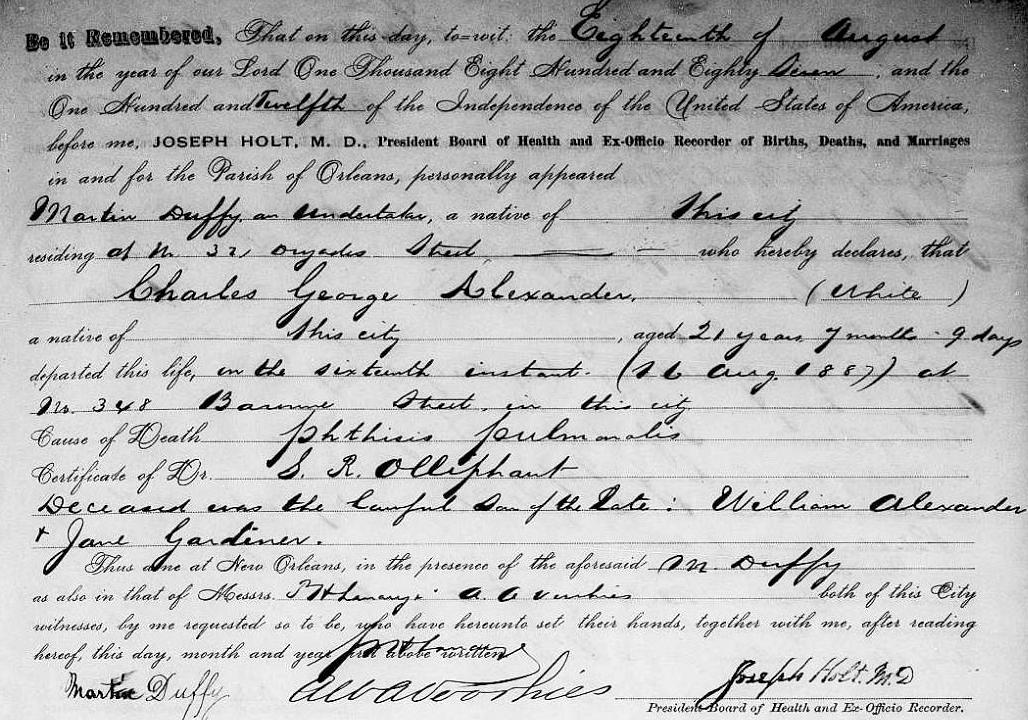 Be it Remembered, That on this day, to=wit: the Eighteenth of August
in the year of our Lord One Thousand Eight Hundred and Eighty Seven, and the
One Hundred and Twelfth of the Independence of the United States of America,
before me, JOSEPH HOLT, M. D., President Board of Health and Ex-Officio Recorder of Births, Deaths, and Marriages
in and for the Parish of Orleans, personally appeared
Martin Duffy, an Undertaker, a native of this city
residing at No. 32, Street, who hereby declares, that
Charles George Alexander. (White)
a native of this city, aged 21 years 7 months 9 days
departed this life, on the sixteenth instant. (16 Aug. 1887) at
No. 348 Street, in this city
Cause of Death Phthisis pulmonalis
Certificate of Dr. S. R. Olliphant
Deceased was the lawful Son of the Late: William Alexander
+ Jane Gardiner.
Thus done at New Orleans, in the presence of the aforesaid M. Duffy
as also in that of Messrs. both of this City
witnesses, by me requested so to be, who have hereunto set their hands, together with me, after reading
hereof, this day, month and year first above written
Martin Duffy Joseph Holt. M.D
President Board of Health and Ex-Officio Recorder.